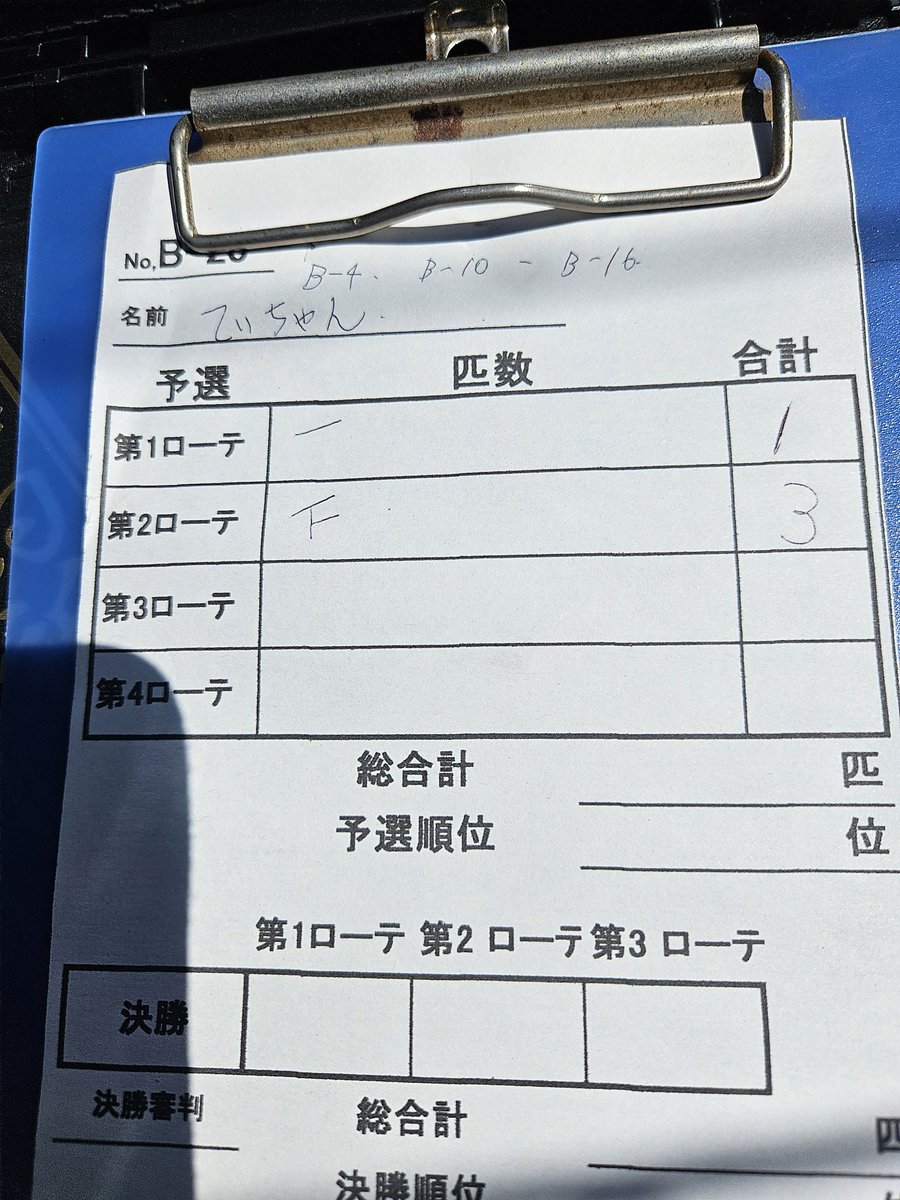 No,B-20
B-4. B-10 - B-16
名前 てぃちゃん.
予選 匹数 合計
第1ローテ 一 1
第2ローテ 下 3
第3ローテ
第4ローテ
総合計 匹
予選順位 位
第1ローテ 第2 ローテ 第3 ローテ
決勝
決勝審判 総合計 匹
決勝順位